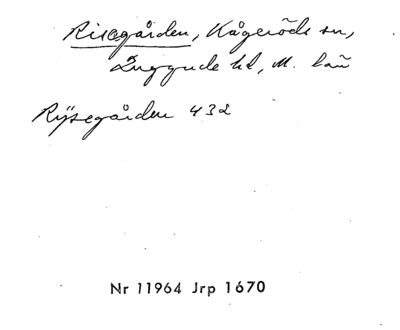 Risegården, Kågeröds sn,
Luggude hd, M. län
Rÿsegården 432
Nr 11964 Jrp 1670